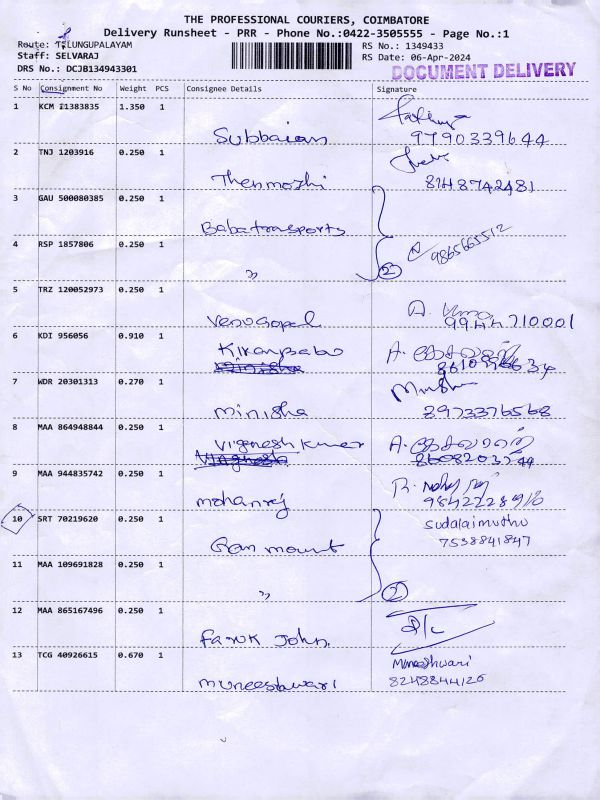 THE PROFESSIONAL COURIERS, COIMBATORE
Delivery Runsheet - PRR - Phone No.:0422-3505555 - Page No.:1
Route: TELUNGUPALAYAM
RS No.: 1349433
Staff: SELVARAJ
RS Date: 06-Apr-2024
DRS No.: DCJB134943301
DOCUMENT DELIVERY
S No Consignment No Weight PCS Consignee Details Signature
1 KCM 21383835 1.350 1
Subbaian 9790339644
2 TNJ 1203916 0.250 1
Thenmozhi 8148742481
3 GAU 500080385 0.250 1
Baba transports
4 RSP 1857806 0.250 1
9865665512
" 2
5 TRZ 120052973 0.250 1
Venugopal 9944710001
6 KDI 956056 0.910 1
Kiran babu A.
7 WDR 20301313 0.270 1
Minisha 8973376568
8 MAA 864948844 0.250 1
Vignesh kumar A.
9 MAA 944835742 0.250 1
mohanraj R.
10 SRT 70219620 0.250 1
Sudalaimuthu
Gan mount 7538841847
11 MAA 109691828 0.250 1
" 2
12 MAA 865167496 0.250 1
Faruk John.
13 TCG 40926615 0.670 1
Muneeshwari
muneeshwari 8248844126